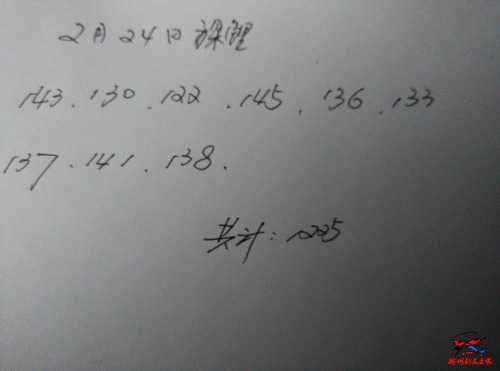 2月24日
143.130.122.145.136.133
137.141.138.
共计:1225